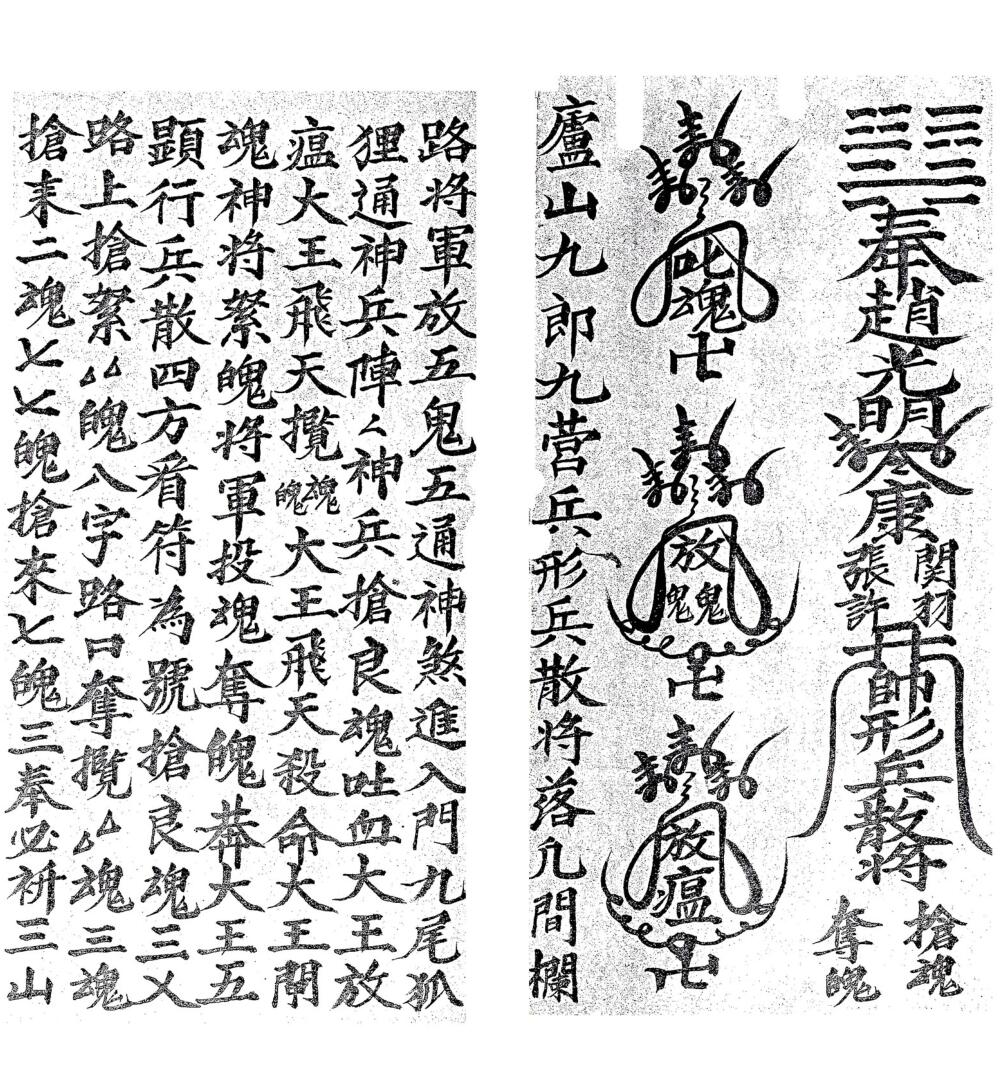 奉趙光明令康
関羽
張許
帥形兵散将
搶魂
奪魄
叱魂
卍
放鬼鬼
卍
放瘟
卍
廬山九郎九营兵形兵散将落凢間欄
路将軍放五鬼五通神煞進入門九尾狐
狸通神兵陣々神兵搶良魂吐血大王放
瘟大王飛天攬魂魄大王飛天殺命大王閙
魂神将綮魄将軍投魂奪魄莾大王五
顕行兵散四方看符為號搶良魂三乂
路上搶綮厶厶魄八字路口奪攬厶厶魂三魂
搶耒二魂七七魄搶來七魄三奉必祈三山